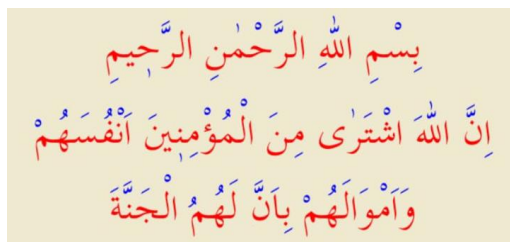 بِسْمِ اللّٰهِ الرَّحْمٰنِ الرَّحٖيمِ
اِنَّ اللّٰهَ اشْتَرٰى مِنَ الْمُؤْمِنٖينَ اَنْفُسَهُمْ
وَاَمْوَالَهُمْ بِاَنَّ لَهُمُ الْجَنَّةَ